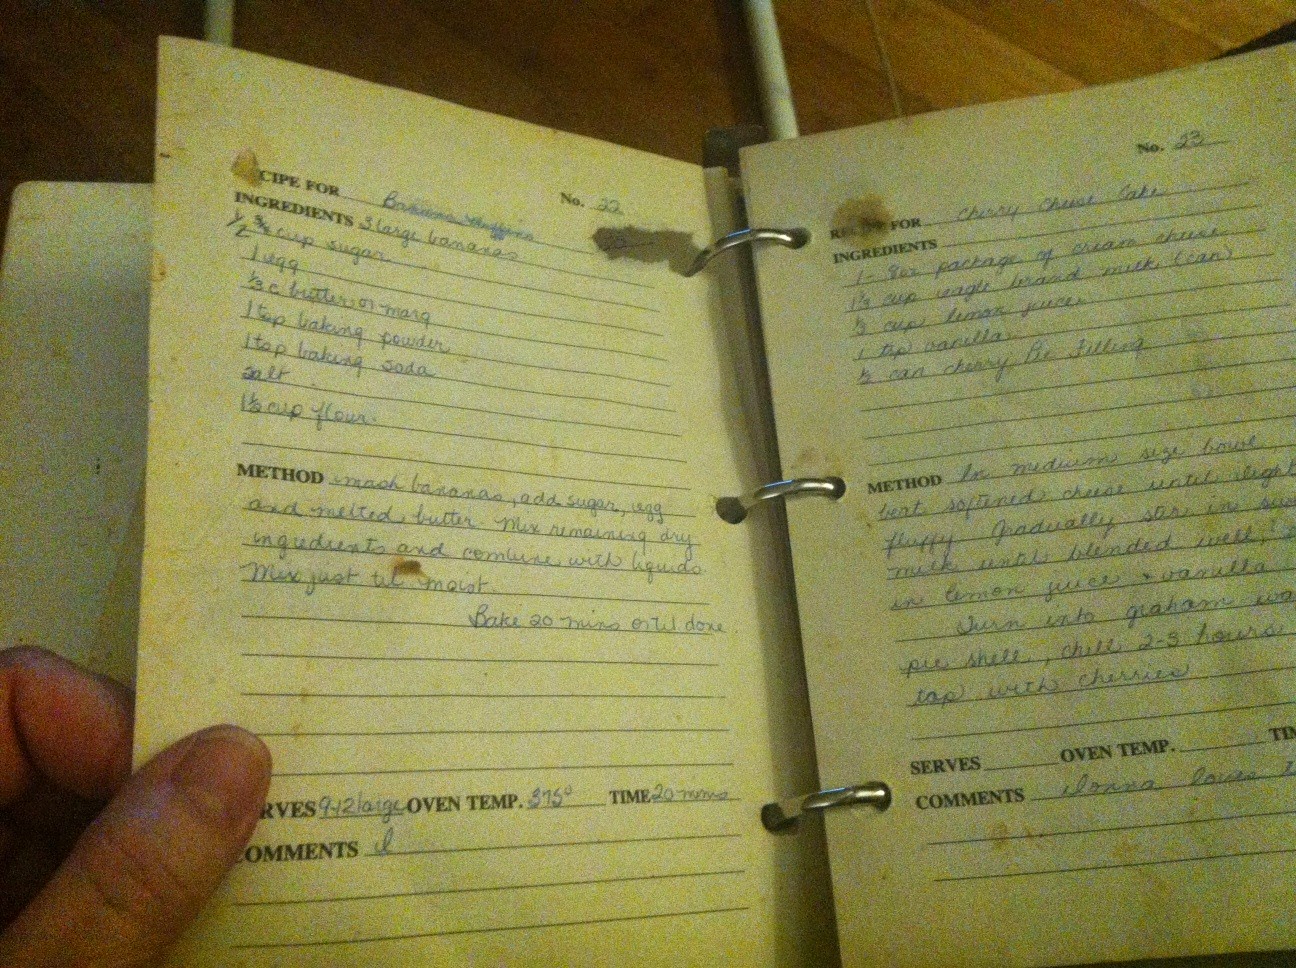 RECIPE FOR Banana Muffins No. 22
INGREDIENTS 3 large bananas
1/2 3/4 cup sugar
1 egg
1/3 c butter or marg
1 tsp baking powder
1 tsp baking soda
salt
1 1/2 cup flour.
METHOD mash bananas, add sugar, egg
and melted butter. Mix remaining dry
ingredients and combine with liquids
Mix just til moist.
Bake 20 mins or til done.
RVES 9-12 large OVEN TEMP. 375° TIME 20 mins
COMMENTS
No. 23
FOR Cherry Cheese Cake
INGREDIENTS
1 - 8oz package of cream cheese
1 1/3 cup eagle brand milk (can)
1/3 cup lemon juice
1 tsp vanilla
1/2 can cherry Pie Filling
METHOD In medium size bowl
beat softened cheese until light
fluffy Gradually stir in
milk until blended well,
in lemon juice + vanilla
Turn into graham
pie shell, chill 2-3 hours
top with cherries
SERVES OVEN TEMP. TI
COMMENTS Donna loves